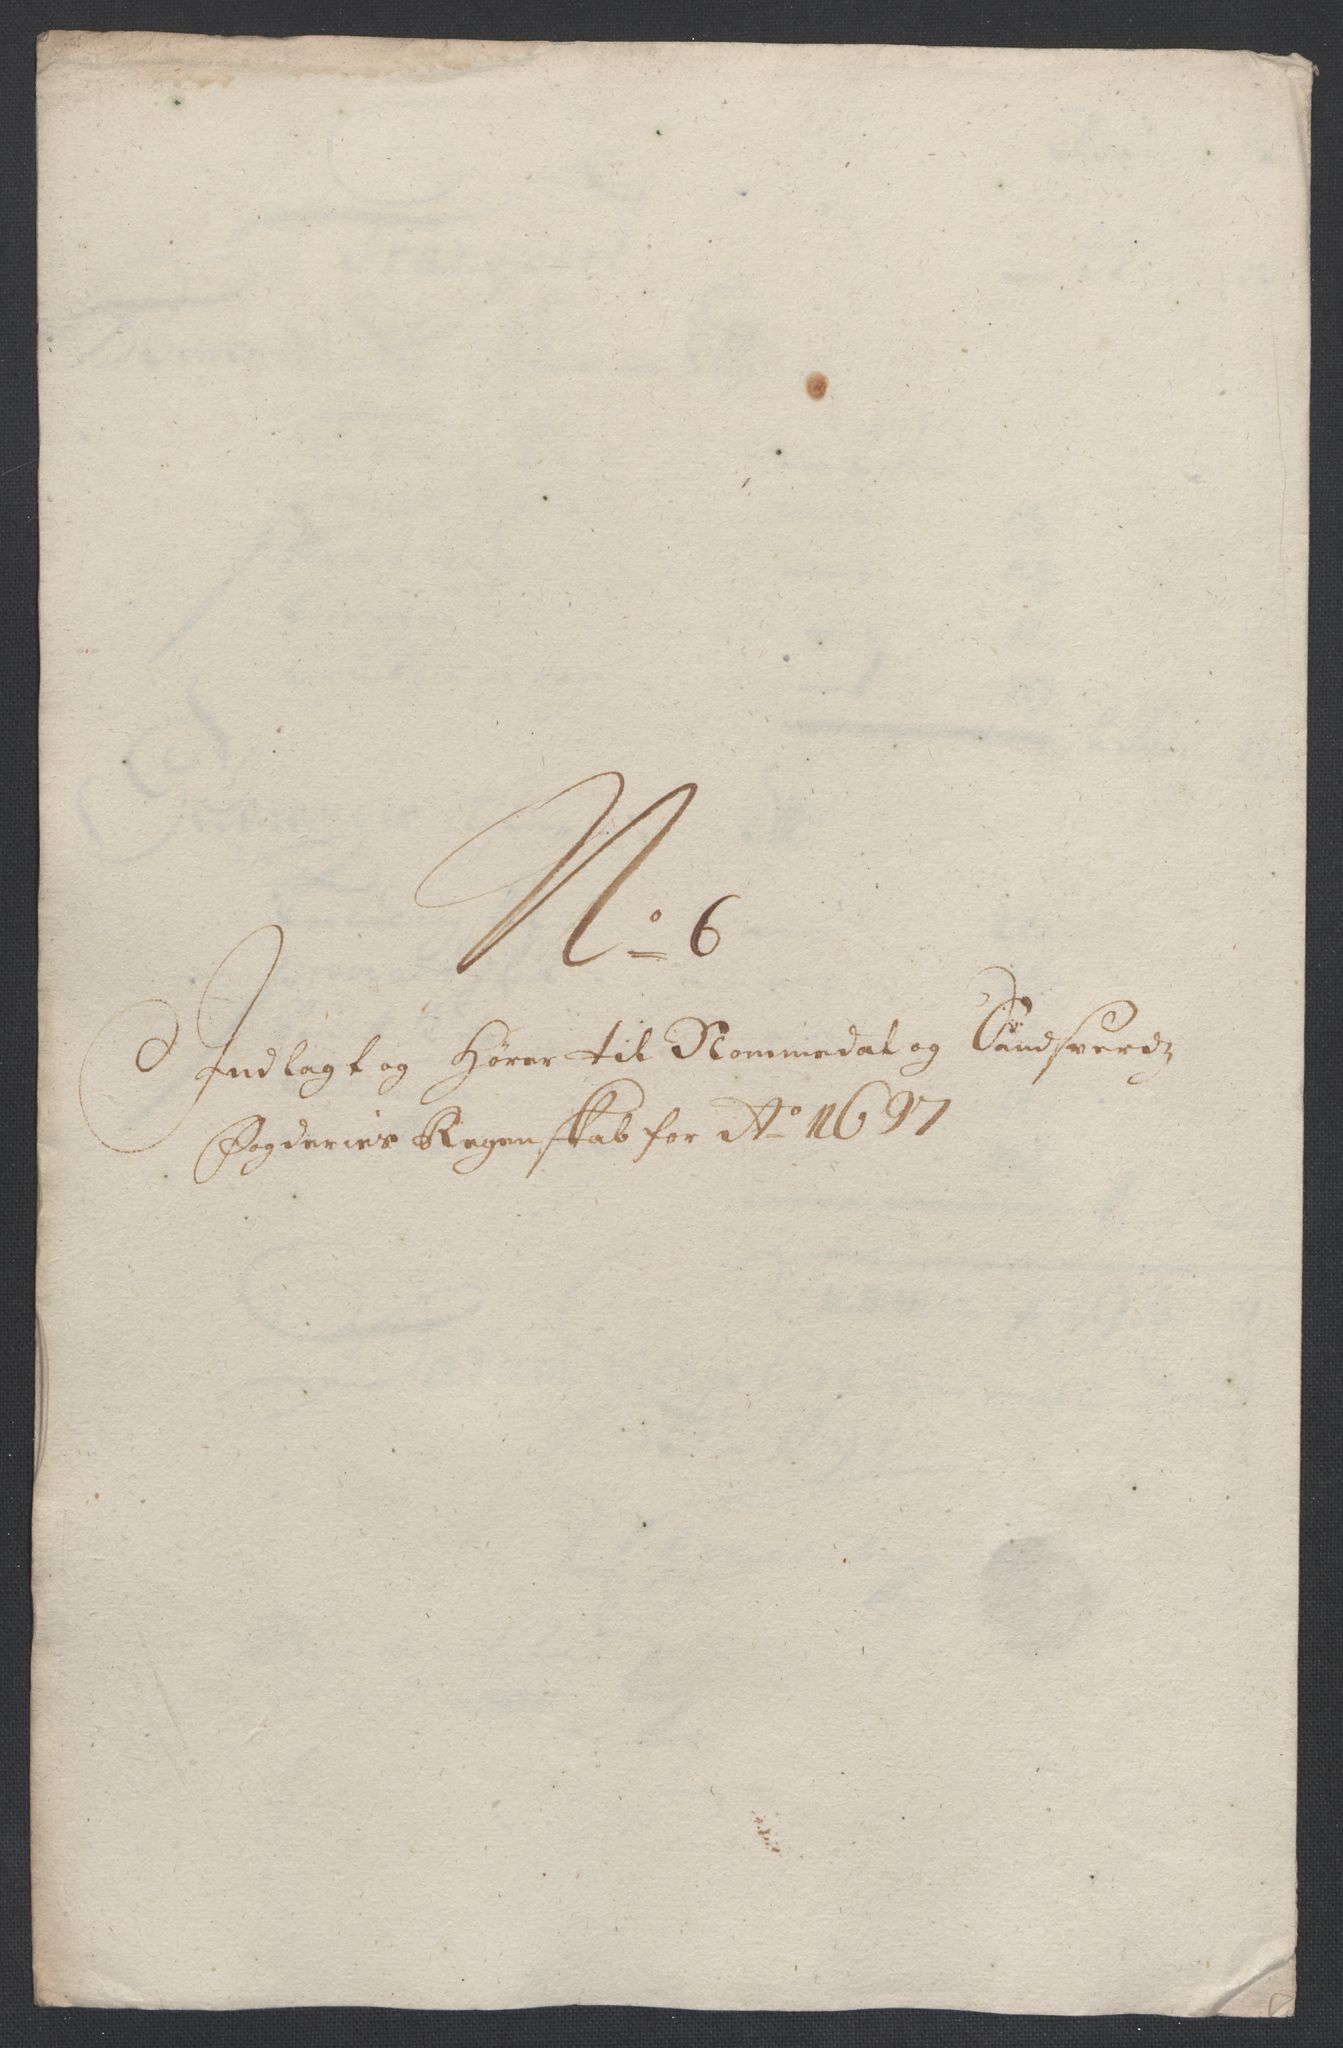 No 6
Indlagt og Hører til Nommedal og Sandsverdz
Fogderies Regenskab for Ao 1697